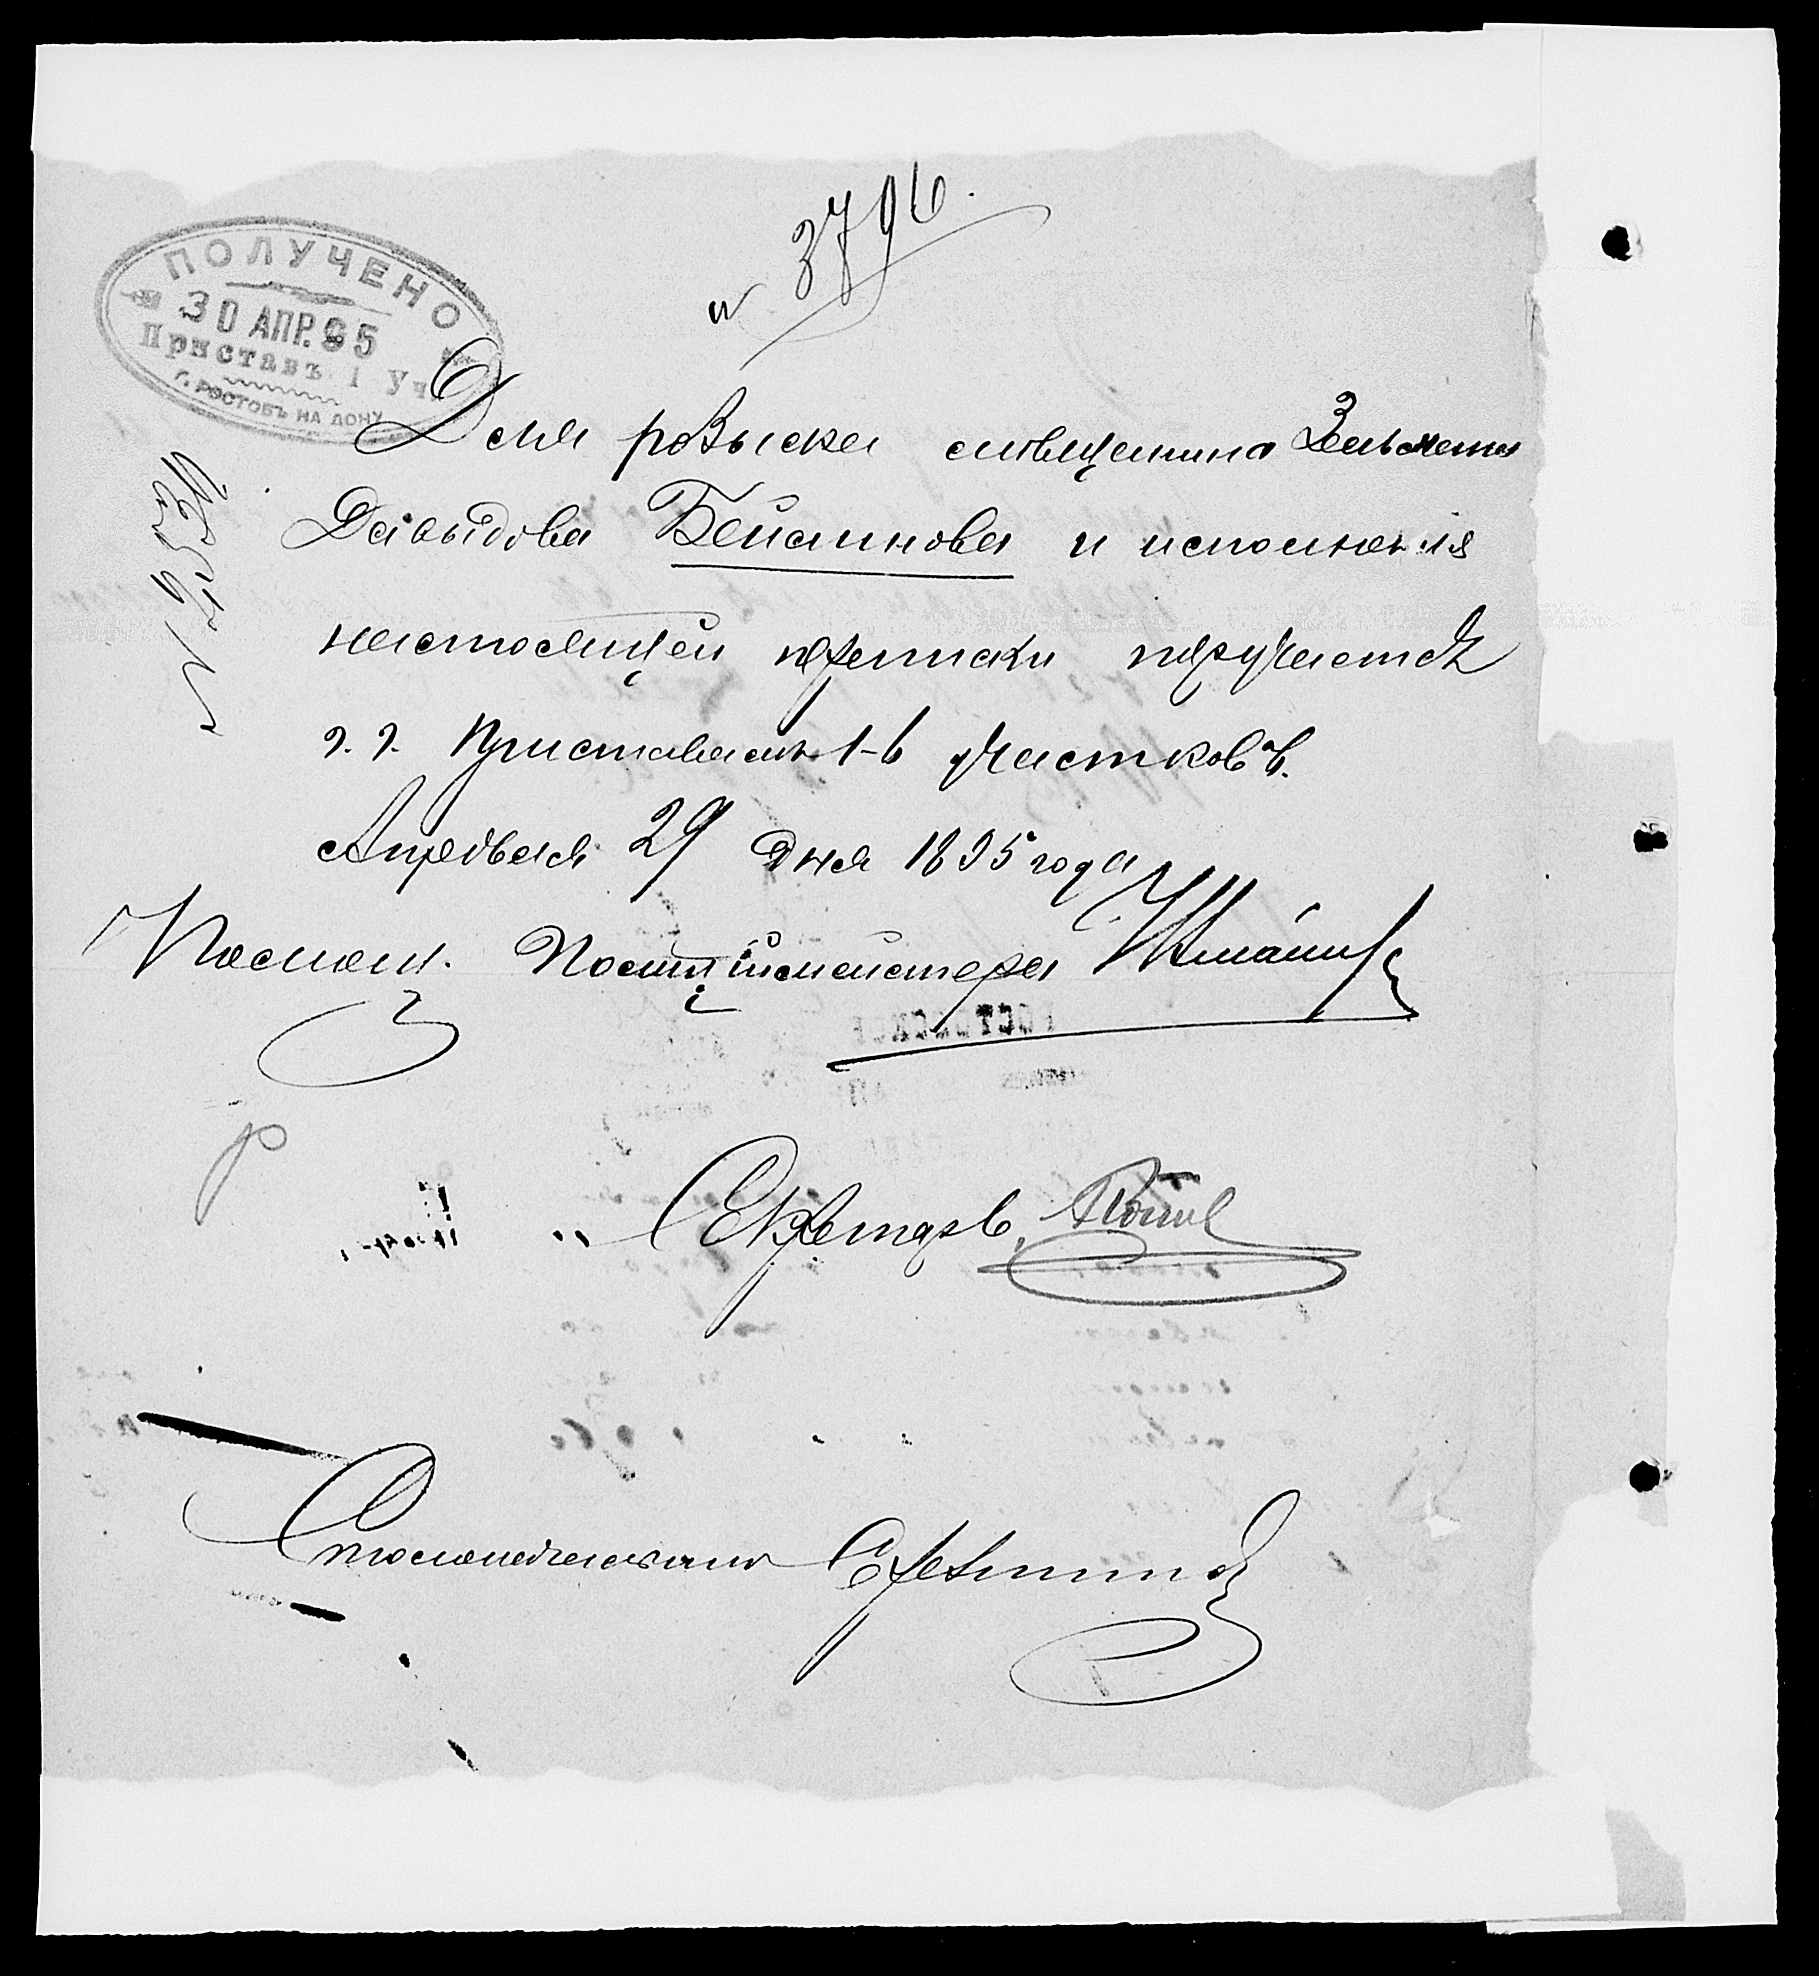 ПОЛУЧЕНО
30 АПР. 95
Приставъ 1 Уч.
Г. РОСТОВЪ НА ДОНУ
№ 3796.
№ 2534
Для розыска мѣщанина
Давыдова Бейлинова и исполненія
настоящей переписки поручается
г. г. Приставамъ 1-6 участковъ.
Апрѣля 29 дня 1895 года
Помощ. Полиціймейстера
Секретарь
Столоначальникъ